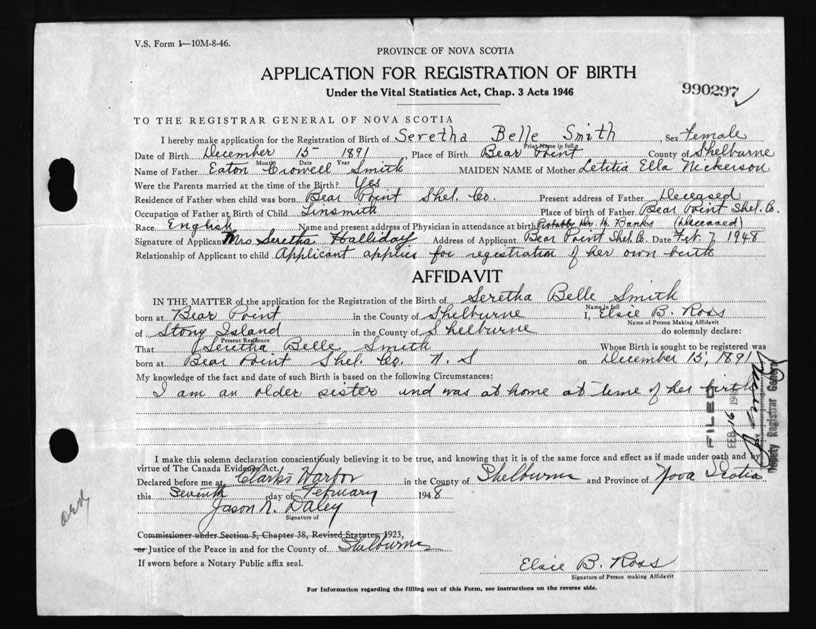 V.S. Form 1—10M-8-46.
PROVINCE OF NOVA SCOTIA
APPLICATION FOR REGISTRATION OF BIRTH
Under the Vital Statistics Act, Chap. 3 Acts 1946
990297
TO THE REGISTRAR GENERAL OF NOVA SCOTIA
I hereby make application for the Registration of Birth of Seretha Belle Smith Sex Female
Print Name in full
Date of Birth December 15 1891, Place of Birth Bear Point County of Shelburne
Month Date Year
Name of Father Eaton Crowell Smith MAIDEN NAME of Mother Letitia Ella Nickerson
Were the Parents married at the time of the Birth? Yes
Residence of Father when child was born Bear Point Shel. Co. Present address of Father Deceased
Occupation of Father at Birth of Child Tinsmith Place of birth of Father Bear Point Shel. Co.
Race English Name and present address of Physician in attendance at birth Probably Dr. Banks (Deceased)
Signature of Applicant Mrs Seretha Halliday Address of Applicant Bear Point Shel. Co. Date Feb. 7, 1948
Relationship of Applicant to child Applicant applies for registration of her own birth
AFFIDAVIT
IN THE MATTER of the application for the Registration of the Birth of Seretha Belle Smith
Name in full
born at Bear Point in the County of Shelburne I, Elsie B. Ross
Name of Person Making Affidavit
of Stony Island in the County of Shelburne do solemnly declare:
Present Residence
That Seretha Belle Smith Whose Birth is sought to be registered was
born at Bear Point Shel. Co. N. S on December 15, 1891
My knowledge of the fact and date of such Birth is based on the following Circumstances:
I am an older sister and was at home at time of her birth
FILED
FEB 16
Deputy Registrar General
I make this solemn declaration conscientiously believing it to be true, and knowing that it is of the same force and effect as if made under oath and by
virtue of The Canada Evidence Act.
Declared before me at Clarks Harbor in the County of Shelburne and Province of Nova Scotia
this Seventh day of February 1948
Jason N. Daley
Signature of
Commissioner under Section 5, Chapter 38, Revised Statutes, 1923,
or Justice of the Peace in and for the County of Shelburne
If sworn before a Notary Public affix seal.
Elsie B. Ross
Signature of Person making Affidavit
For Information regarding the filling out of this Form, see instructions on the reverse side.